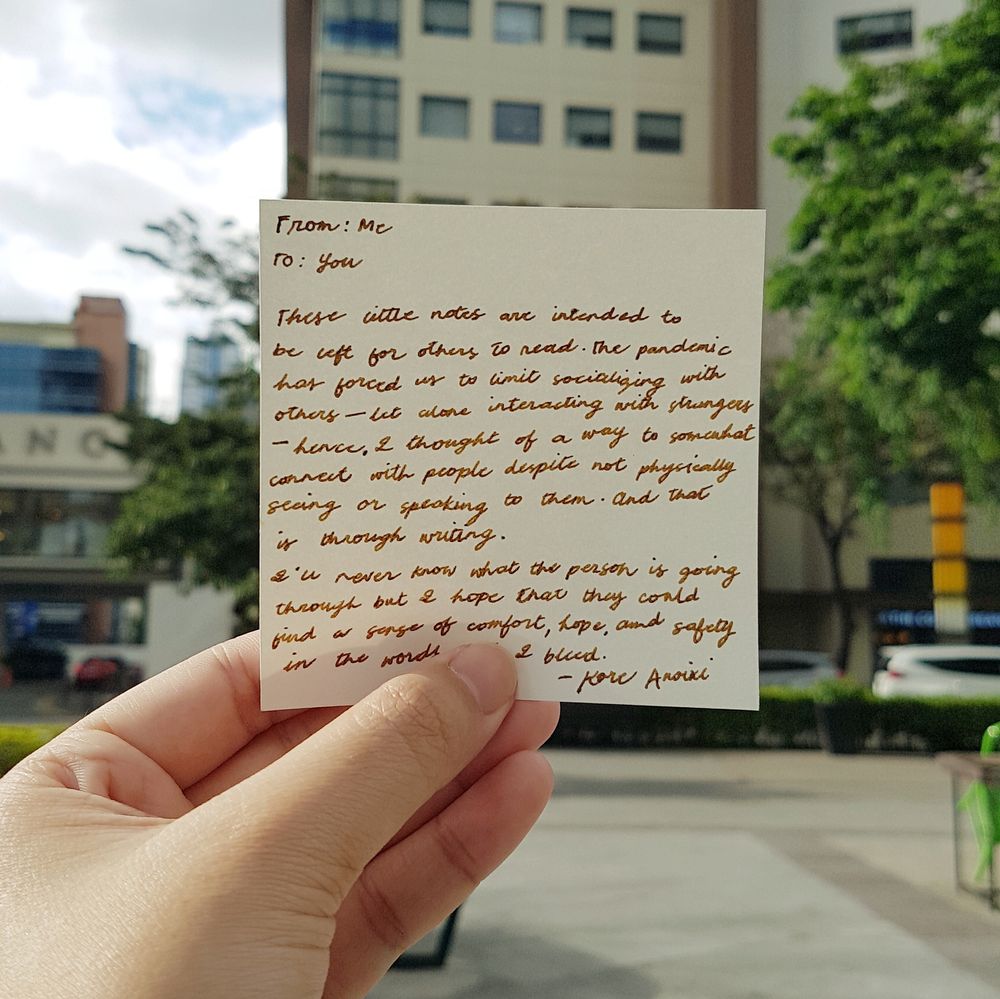 From: Me
To: You
These little notes are intended to
be left for others to read. The pandemic
has forced us to limit socializing with
others — let alone interacting with strangers
— hence, I thought of a way to somewhat
connect with people despite not physically
seeing or speaking to them. And that
is through writing.
I'll never know what the person is going
through but I hope that they could
find a sense of comfort, hope, and safety
in the words I bleed.
- Kore Anoixi
ANG